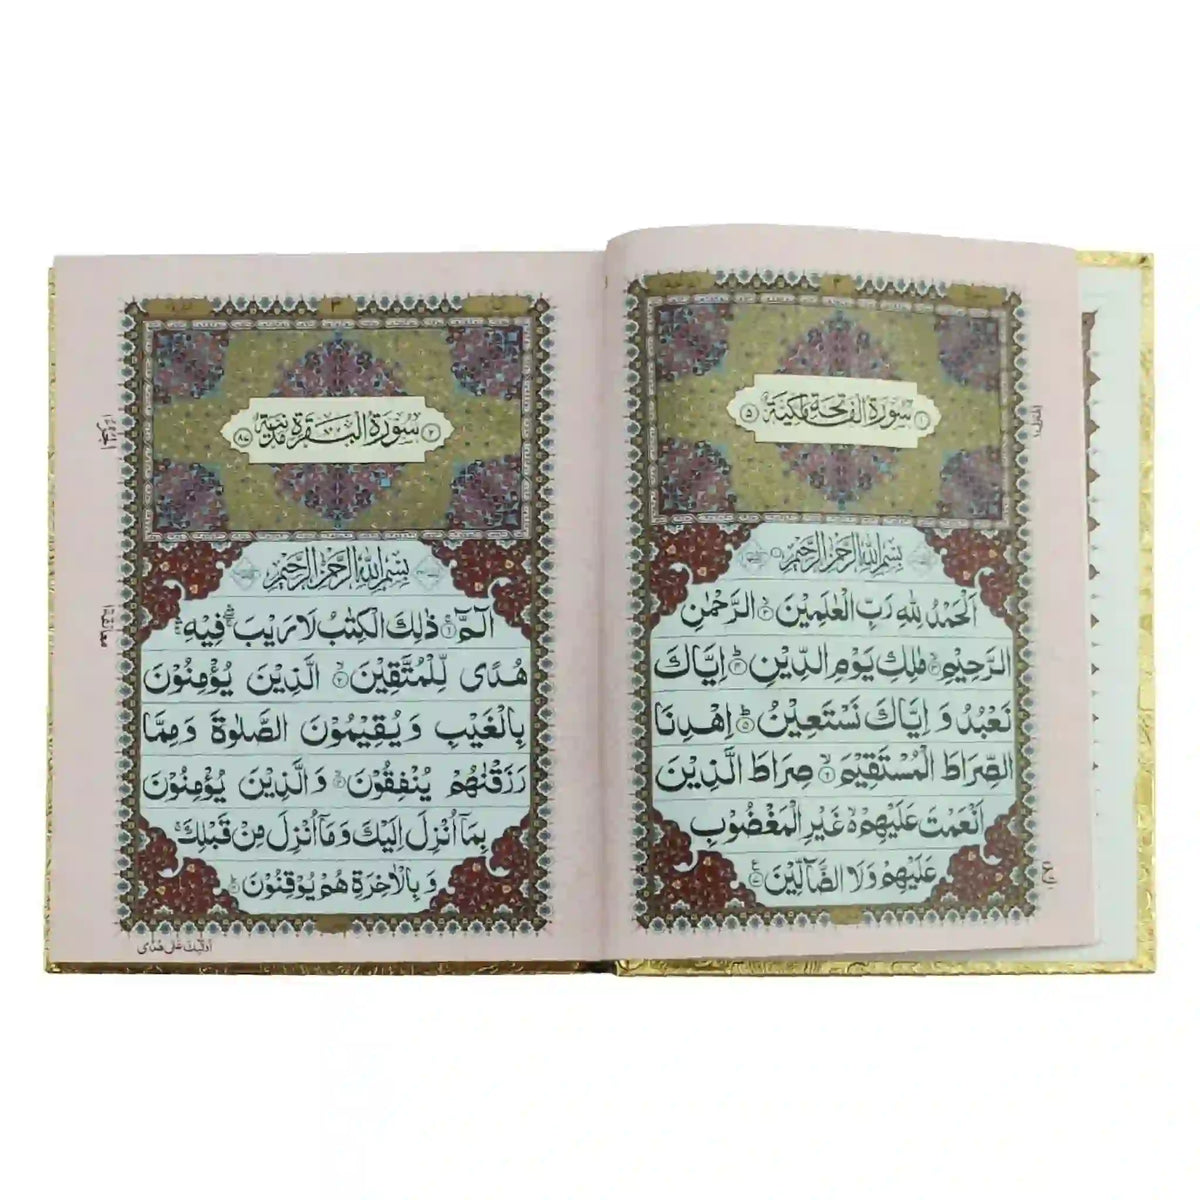 ٥ سُورَةُ الْفَاتِحَةِ مَكِّيَّةٌ ١
بِسْمِ اللهِ الرَّحْمٰنِ الرَّحِيْمِ
اَلْحَمْدُ لِلّٰهِ رَبِّ الْعٰلَمِيْنَ ۙ الرَّحْمٰنِ
الرَّحِيْمِ ۙ مٰلِكِ يَوْمِ الدِّيْنِ ؕ اِيَّاكَ
نَعْبُدُ وَ اِيَّاكَ نَسْتَعِيْنُ ؕ اِهْدِنَا
الصِّرَاطَ الْمُسْتَقِيْمَ ۙ صِرَاطَ الَّذِيْنَ
اَنْعَمْتَ عَلَيْهِمْ ۙ غَيْرِ الْمَغْضُوْبِ
عَلَيْهِمْ وَلَا الضَّآلِّيْنَ
٢ سُورَةُ الْبَقَرَةِ مَدَنِيَّةٌ ٨٧
بِسْمِ اللهِ الرَّحْمٰنِ الرَّحِيْمِ
الٓمّٓ ۚ ذٰلِكَ الْكِتٰبُ لَا رَيْبَ ۛ فِيْهِ ۛ
هُدًى لِّلْمُتَّقِيْنَ ۙ الَّذِيْنَ يُؤْمِنُوْنَ
بِالْغَيْبِ وَ يُقِيْمُوْنَ الصَّلٰوةَ وَ مِمَّا
رَزَقْنٰهُمْ يُنْفِقُوْنَ ۙ وَ الَّذِيْنَ يُؤْمِنُوْنَ
بِمَاۤ اُنْزِلَ اِلَيْكَ وَ مَاۤ اُنْزِلَ مِنْ قَبْلِكَ ۚ
وَ بِالْاٰخِرَةِ هُمْ يُوْقِنُوْنَ ؕ
اُولٰٓئِكَ عَلٰى هُدًى